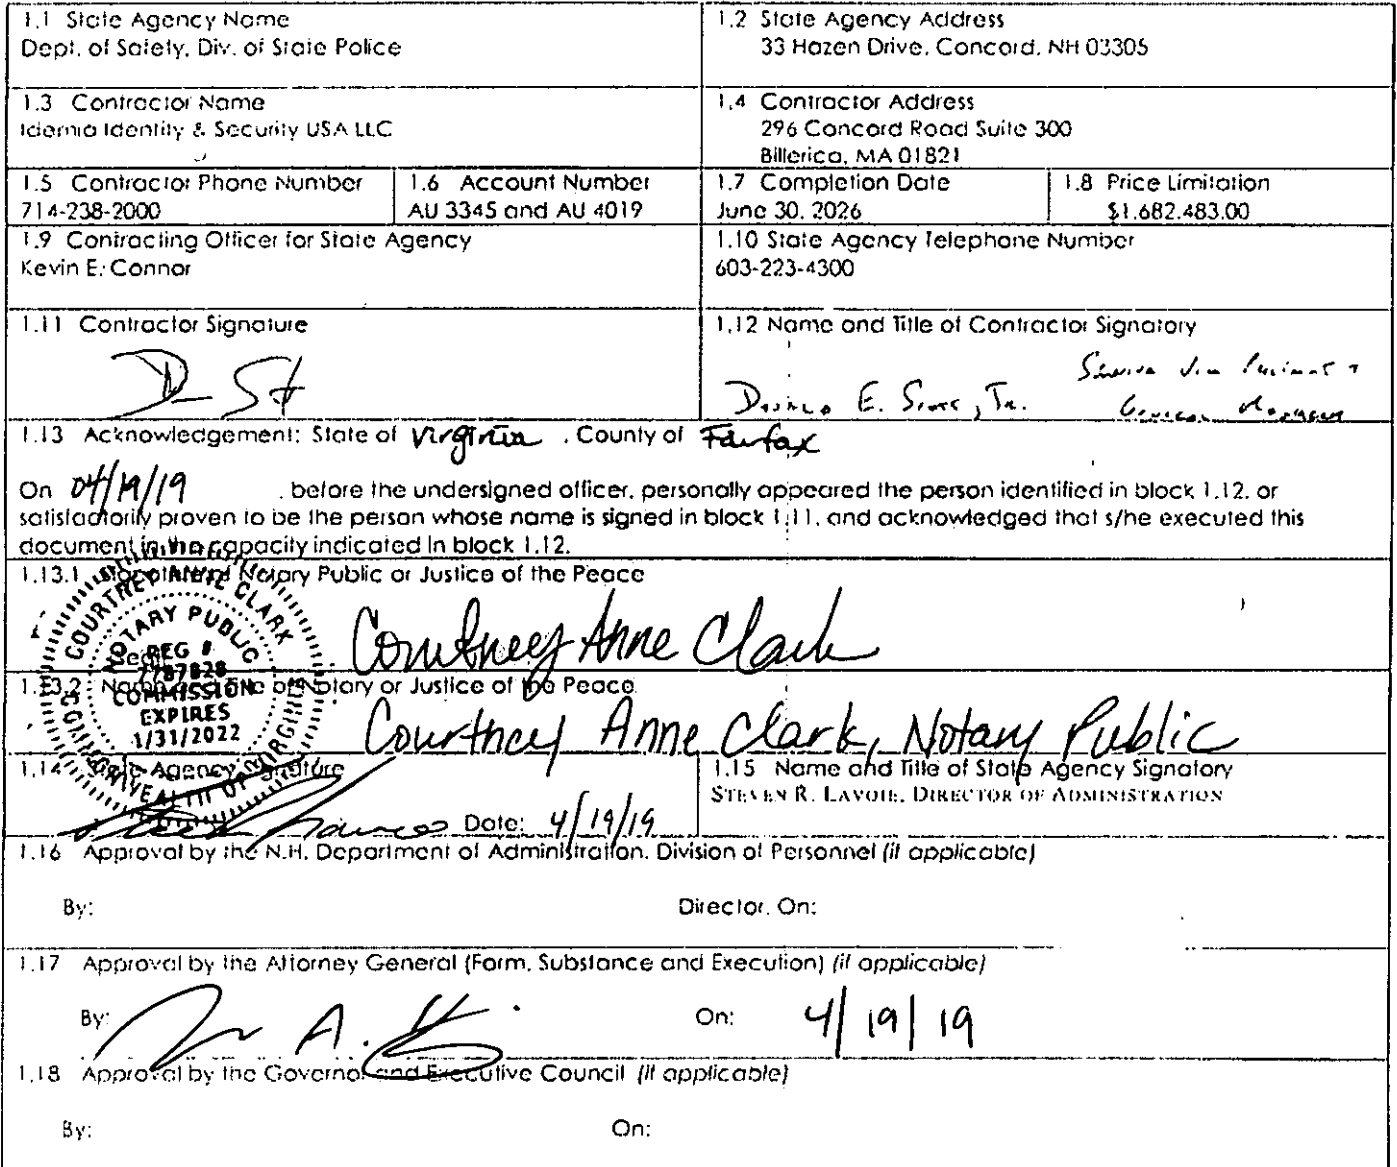 1.1 State Agency Name
Dept. of Safety, Div. of State Police
1.2 State Agency Address
33 Hazen Drive, Concord, NH 03305
1.3 Contractor Name
Idemia Identity & Security USA LLC
1.4 Contractor Address
296 Concord Road Suite 300
Billerica, MA 01821
1.5 Contractor Phone Number
714-238-2000
1.6 Account Number
AU 3345 and AU 4019
1.7 Completion Date
June 30, 2026
1.8 Price Limitation
$1,682,483.00
1.9 Contracting Officer for State Agency
Kevin E. Connor
1.10 State Agency Telephone Number
603-223-4300
1.11 Contractor Signature
1.12 Name and Title of Contractor Signatory
E. Scott, Jr.
1.13 Acknowledgement: State of Virginia , County of Fairfax
On 04/19/19 , before the undersigned officer, personally appeared the person identified in block 1.12, or
satisfactorily proven to be the person whose name is signed in block 1.11, and acknowledged that s/he executed this
document in the capacity indicated in block 1.12.
1.13.1 Notary Public or Justice of the Peace
COURTNEY ANNE CLARK
NOTARY PUBLIC
REG #
7787828
COMMISSION
EXPIRES
1/31/2022
COMMONWEALTH OF VIRGINIA
Courtney Anne Clark
1.13.2 Name and Title of Notary or Justice of the Peace
Courtney Anne Clark, Notary Public
1.14 State Agency Signature
Date: 4/19/19
1.15 Name and Title of State Agency Signatory
STEVEN R. LAVOIE, DIRECTOR OF ADMINISTRATION
1.16 Approval by the N.H. Department of Administration, Division of Personnel (if applicable)
By: Director, On:
1.17 Approval by the Attorney General (Form, Substance and Execution) (if applicable)
By: On: 4/19/19
1.18 Approval by the Governor and Executive Council (if applicable)
By: On: